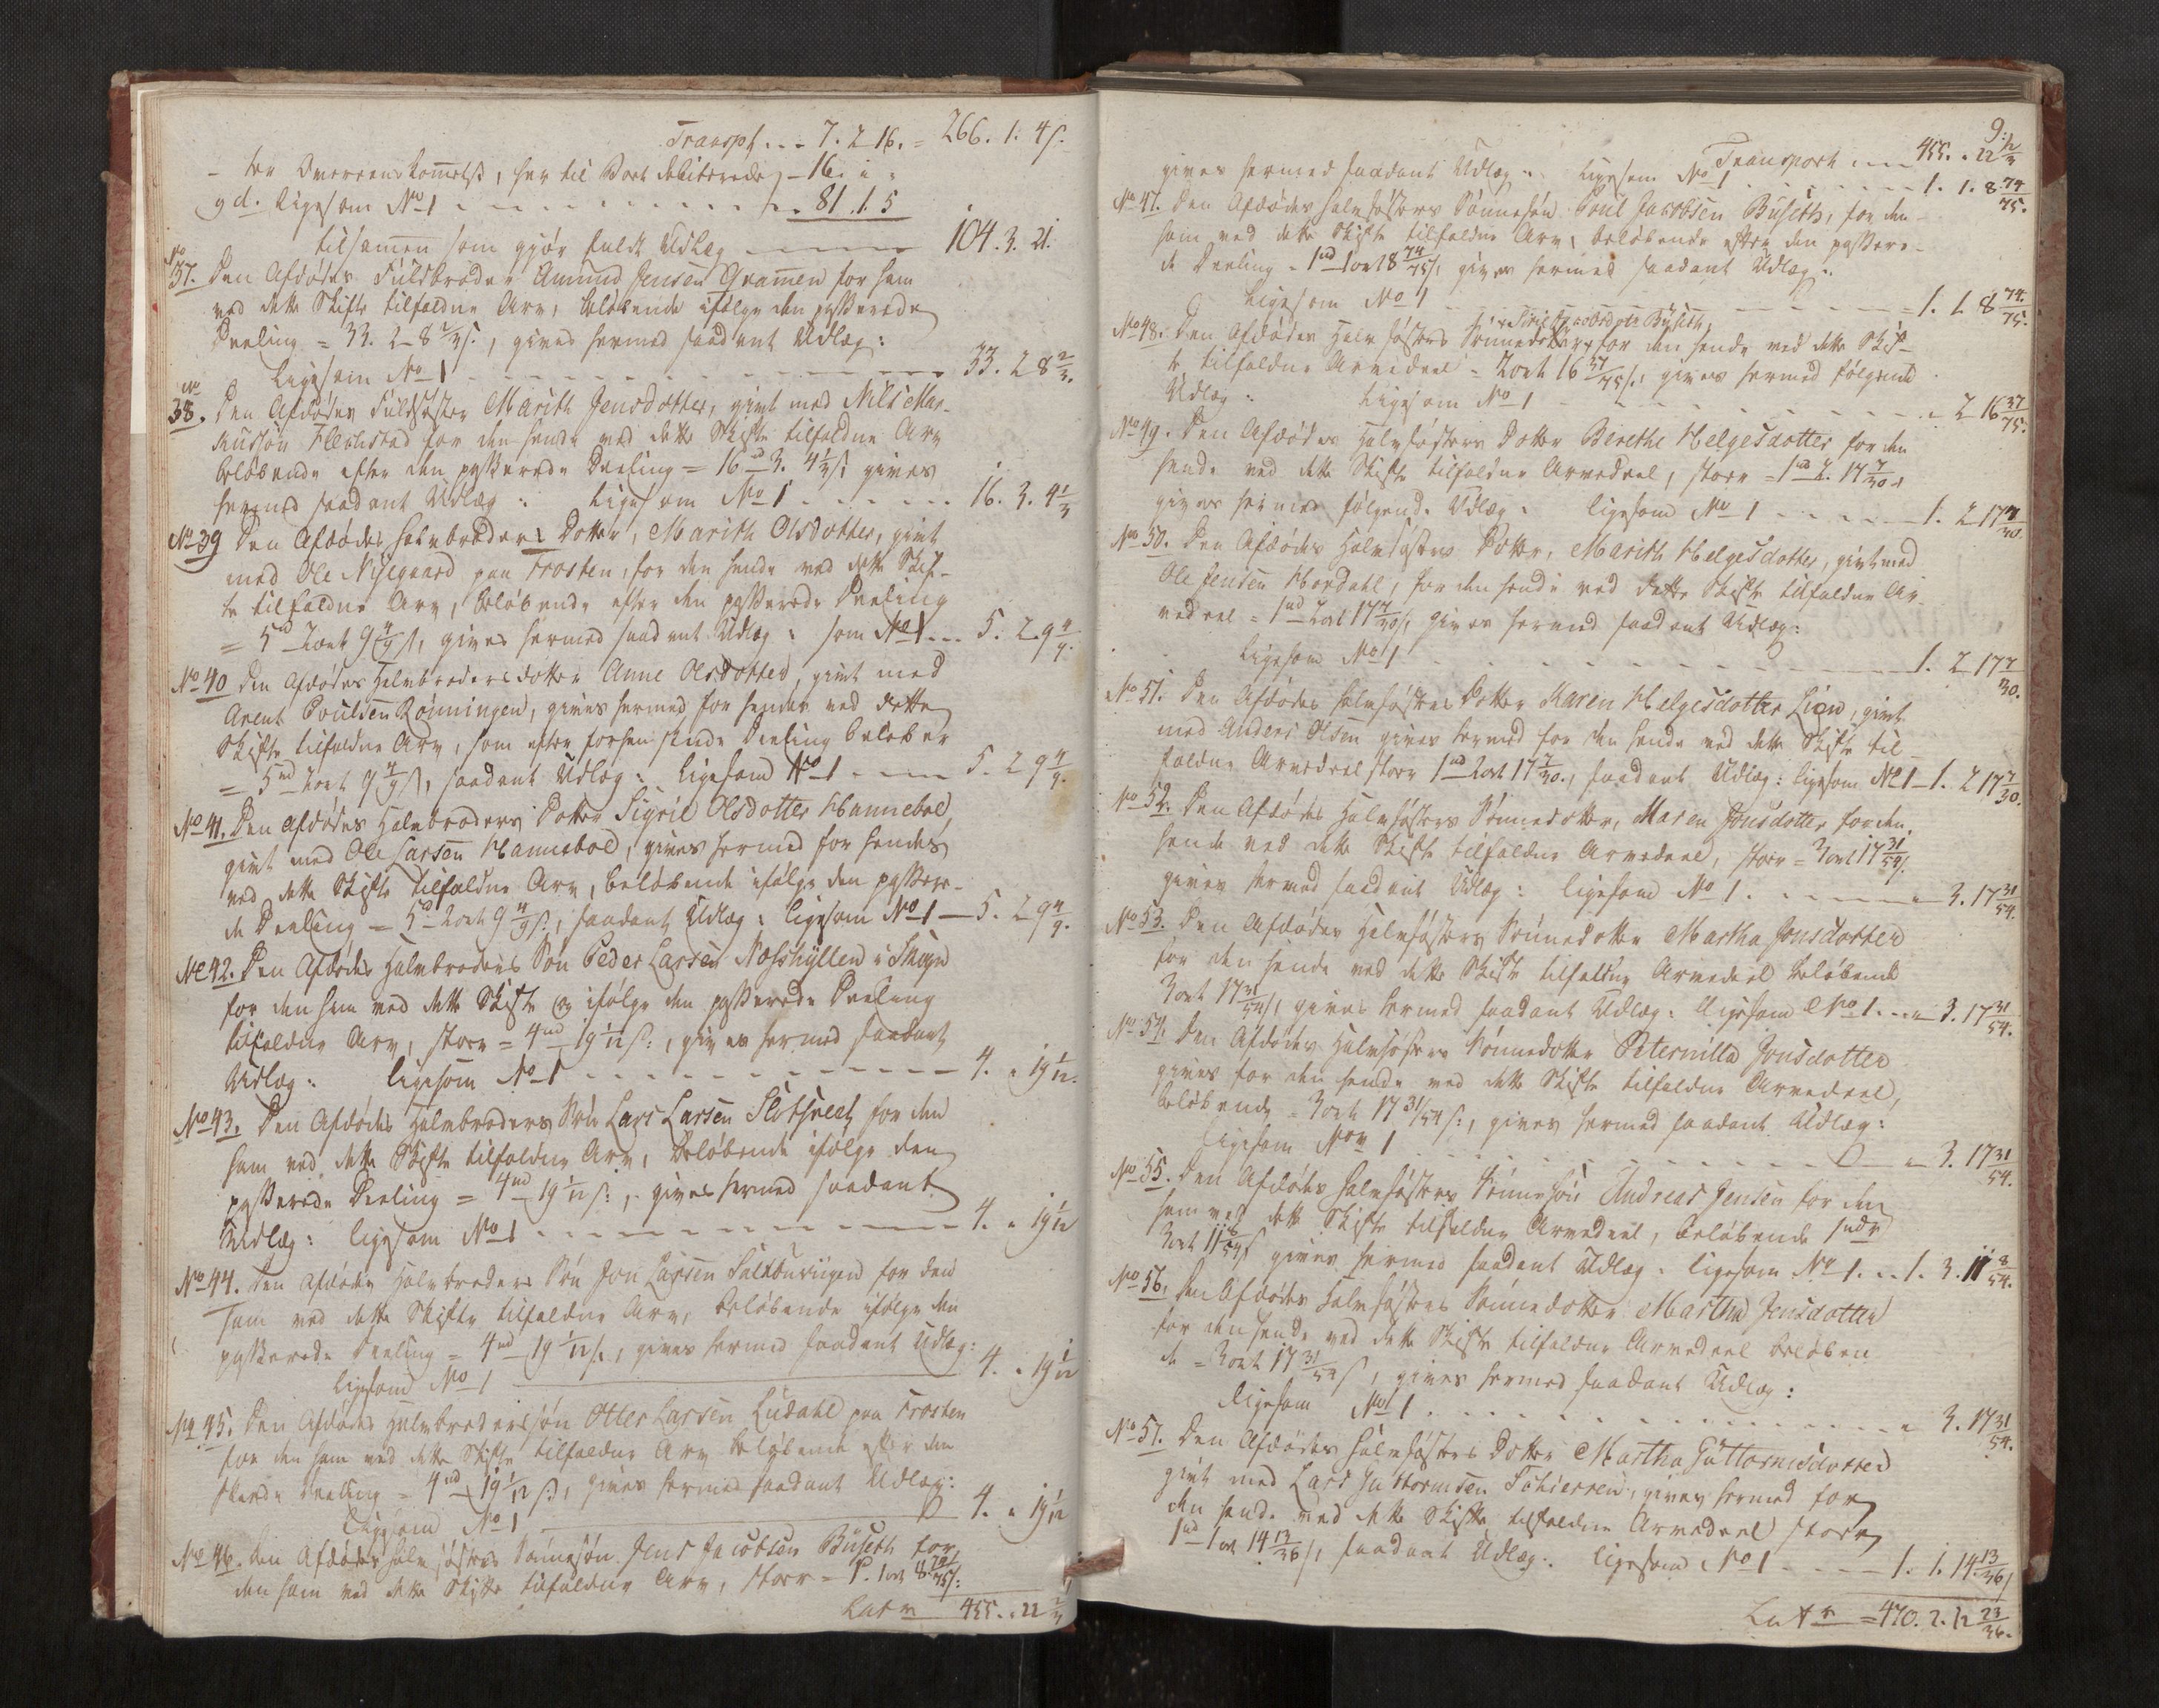 Transpt. - - 7. 2 16. = 266. 1. 4 s.
- ter Overeenskommelse, her til Boet debiterede - 16. " "
g d. Ligesom No 1 - - - - - 81. 1. 5
tilsamen som gjør fuldt Udlæg - - - 104. 3. 21.
No 37. Den Afdødes Fuldbroder Amund Jensen Gramen for ham
ved dette Skifte tilfaldne Arv, beløbende ifølge den passerede
Deeling = 33. 2 - 8 2/3 s., gives hermed saadant Udlæg:
Ligesom No 1 - - - - - 33. 2 8 2/3.
No 38. Den Afdødes Fuldsøster Marith Jensdotter, givt med Nils Mar-
kussøn Flekstad for den hende ved dette Skifte tilfaldne Arv
beløbende efter den passerede Deeling = 16 rd 3. 4 1/3 s; gives
hermed saadant Udlæg: Ligesom No 1 - - - - 16. 3. 4 1/3
No 39 Den Afdødes halvbroders Dotter, Marith Olsdotter, givt
med Ole Nisegaard paa Frosten, for den hende ved dette Skif-
te tilfaldne Arv, beløbende efter den passerede Deeling
= 5 rd 2 ort 9 4/9 s, gives hermed saadant Udlæg: som No 1 - - 5. 2. 9 4/9.
No 40 Den Afdødes Halvbroders dotter Anne Olsdotter, givt med
Arent Poulsen Rønningen, gives hermed for hendes ved dette
Skifte tilfaldne Arv, som efter forhen skende Deeling beløber
= 5 rd 2 ort 9 4/9 s, saadant Udlæg: ligesom No 1 - - - 5. 2 9 4/9.
No 41. Den Afdødes Halvbroders Dotter Sigrid Olsdotter Hanneboe,
givt med Ole Larsen Hanneboe, gives hermed for hendes
ved dette Skifte tilfaldne Arv, beløbende ifølge den passere-
de Deeling = 5 rd 2 ort 9 4/9 s:, saadant Udlæg: ligesom No 1 - 5. 2 9 4/9.
No 42. Den Afdødes Halvbroders Søn Peder Larsen Næsshyllen i Skogn
for den ham ved dette Skifte og ifølge den passerede Deeling
tilfaldne Arv, stoer = 4 rd - 19 1/12 s:, gives hermed saadant
Udlæg: ligesom No 1 - - - - - - 4. " 19 1/12.
No 43. Den Afdødes Halvbroders Søn Lars Larsen for den
ham ved dette Skifte tilfaldne Arv, beløbende ifølge den
passerede Deeling = 4 rd 19 1/12 s:, gives hermed saadant
Udlæg: ligesom No 1 - - - - - - 4. " 19 1/12
No 44. Den Afdødes Halvbroders Søn Jon Larsen for den
ham ved dette Skifte tilfaldne Arv, beløbende ifølge den
passerede Deeling = 4 rd 19 1/12 s., gives hermed saadant Udlæg:
ligesom No 1 - - - 4. " 19 1/12
No 45. Den Afdødes Halvbroders søn Otter Larsen Ludahl paa Frosten
for den ham ved dette Skifte tilfaldne Arv beløbende efter den
skeede Deeling = 4 rd 19 1/12 s, gives hermed saadant Udlæg:
Ligesom No 1 - - - 4. " 19 1/12
No 46. Den Afdødes halvsøsters Sønnesøn Jens Jacobsen Buseth for
den ham ved dette Skifte tilfaldne Arv, stoer = 1. 1 ort 8 74/75 s:
Lat = 455. " 22 2/3
9.
Transport - - - 455. " 22 2/3
gives hermed saadant Udlæg: Ligesom No 1 - - - - 1. 1. 8 74/75.
No 47. Den Afdødes halvsøsters Sønnesøn Poul Jacobsen Buseth, for den
ham ved dette Skifte tilfaldne Arv, beløbende efter den passere-
de Deeling - 1 rd 1 ort 8 74/75 s, gives hermed saadant Udlæg:
Ligesom No 1 - - - - - 1. 1 8 74/75.
Jacobsdotter Buseth,
No 48. Den Afdødes Halvsøsters Sønnedotter for den hende ved dette Skif-
te tilfaldne Arvedeel = 2 ort 16 37/75 s., gives hermed følgende
Udlæg: Ligesom No 1 - - - - - " 2 16 37/75.
No 49. Den Afdødes Halvsøsters Dotter Berethe Helgesdotter for den
hende ved dette Skifte tilfaldne Arvedeel, stoer = 1 rd 2. 17 7/30 s
gives hermed følgende Udlæg: ligesom No 1 - - - - 1. 2 17 7/30.
No 50. Den Afdødes Halvsøsters Dotter, Marith Helgesdotter, givt med
Ole Jensen Hordahl, for den hende ved dette Skifte tilfaldne Ar-
vedeel = 1 rd 2 ort 17 7/30 s, gives hermed saadant Udlæg:
Ligesom No 1 - - - - - 1. 2 17 7/30.
No 51. Den Afdødes halvsøsters Dotter Maren Helgesdotter Lien, givt
med Anders Olsen gives hermed for den hende ved dette Skifte til-
faldne Arvedeel stoer 1 rd 2 ort 17 7/30., saadant Udlæg: ligesom No 1 - 1. 2 17 7/30.
No 52. Den Afdødes Halvsøsters Sønnedotter, Maren Jonsdotter for den
hende ved dette Skifte tilfaldne Arvedeel, stoer = 3 ort 17 31/54 s.
gives hermed saadant Udlæg: ligesom No 1. - - - - " 3. 17 31/54.
No 53. Den Afdødes Halvsøsters Sønnedotter Martha Jonsdotter
for den hende ved dette Skifte tilfaldne Arvedeel beløbende
3 ort 17 31/54 s, gives hermed saadant Udlæg: ligesom No 1. - - " 3. 17 31/54.
No 54. Den Afdødes Halvsøsters Sønnedotter Peternilla Jonsdotter
gives for den hende ved dette Skifte tilfaldne Arvedeel,
beløbende = 3 ort 17 31/54 s:, gives hermed saadant Udlæg:
ligesom No 1 - - - - - " 3. 17 31/54.
No 55. Den Afdødes halvsøsters Sønnesøn Andreas Jensen for den
ham ved dette Skifte tilfaldne Arvedeel, beløbende 1 rd
3 ort 11 8/54 s gives hermed saadant Udlæg: ligesom No 1. - - 1. 3. 11 8/54.
No 56. Den Afdødes Halvsøsters Sønnedotter Martha Jensdotter
for den hende ved dette Skifte tilfaldne Arvedeel beløben
de = 3 ort 17 31/54 s, gives hermed saadant Udlæg:
ligesom No 1 - - - - - " 3. 17 31/54.
No 57. Den Afdødes halvsøsters Dotter Martha Guttormsdotter
givt med Lars Guttormsen Schierren, gives hermed for
den hende ved dette Skifte tilfaldne Arvedeel stoer
1 rd 1 ort 14 13/36 s, saadant Udlæg: ligesom No 1 - - - - 1. 1. 14 13/36
Lat = 470. 2. 12 23/36.